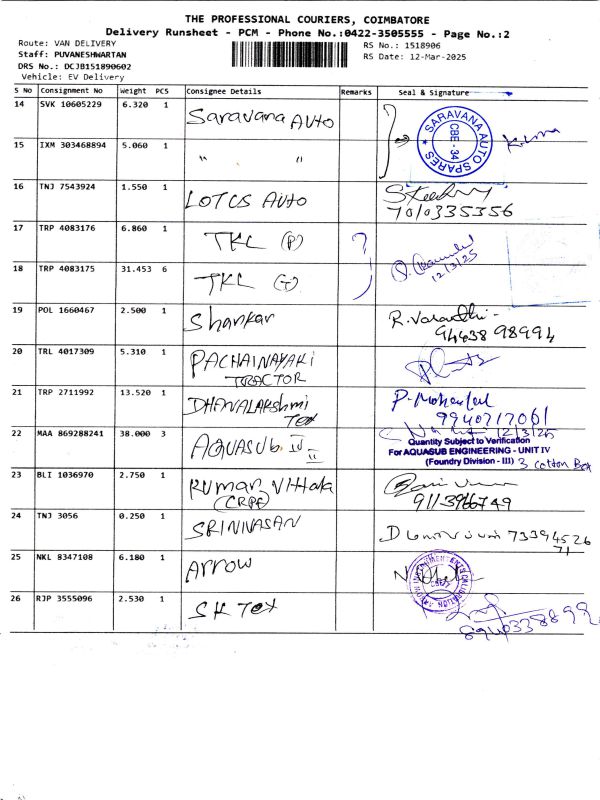 THE PROFESSIONAL COURIERS, COIMBATORE
Delivery Runsheet - PCM - Phone No.:0422-3505555 - Page No.:2
Route: VAN DELIVERY
RS No.: 1518906
Staff: PUVANESHWARTAN
RS Date: 12-Mar-2025
DRS No.: DCJB151890602
Vehicle: EV Delivery
S No Consignment No Weight PCS Consignee Details Remarks Seal & Signature
14 SVK 10605229 6.320 1 Saravana Auto
SARAVANA AUTO SPARES CBE - 34
15 IXM 303468894 5.060 1 " "
16 TNJ 7543924 1.550 1 LOTUS AUTO
7010335356
17 TRP 4083176 6.860 1 TKL (P)
12/3/25
18 TRP 4083175 31.453 6 TKL (T)
19 POL 1660467 2.500 1 Shankar
94438 98994
20 TRL 4017309 5.310 1 PACHAINAYAKI
TRACTOR
21 TRP 2711992 13.520 1 DHANALAKshmi
Tex
9940717061
22 MAA 869288241 38.000 3 AQUASUB IV
II
12/3/25
Quantity Subject to Verification
For AQUASUB ENGINEERING - UNIT IV
(Foundry Division - III) 3 cotton Box
23 BLI 1036970 2.750 1 KUMAR VITTALA
(CRPF)
9113966749
24 TNJ 3056 0.250 1 SRINIVASAN
73394526
71
25 NKL 8347108 6.180 1 Arrow
26 RJP 3555096 2.530 1 SK Tex
8940338899